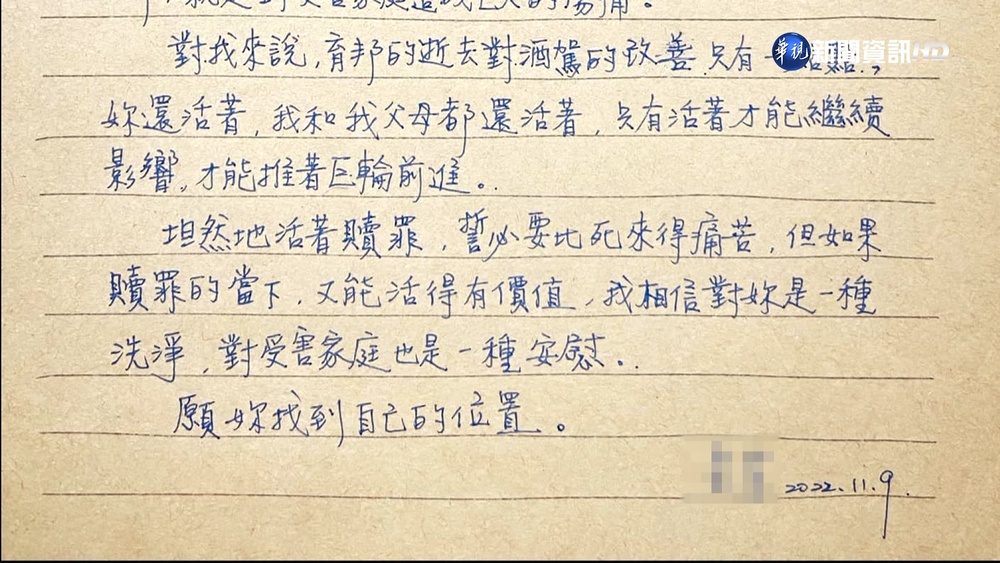 對我來說，育邦的逝去對酒駕的改善只有一
華視新聞資訊HD
妳還活著，我和我父母都還活著，只有活著才能繼續
影響，才能推著巨輪前進。
坦然地活著贖罪，誓必要比死來得痛苦，但如果
贖罪的當下，又能活得有價值，我相信對妳是一種
洗淨，對受害家庭也是一種安慰。
願妳找到自己的位置。
2022.11.9.